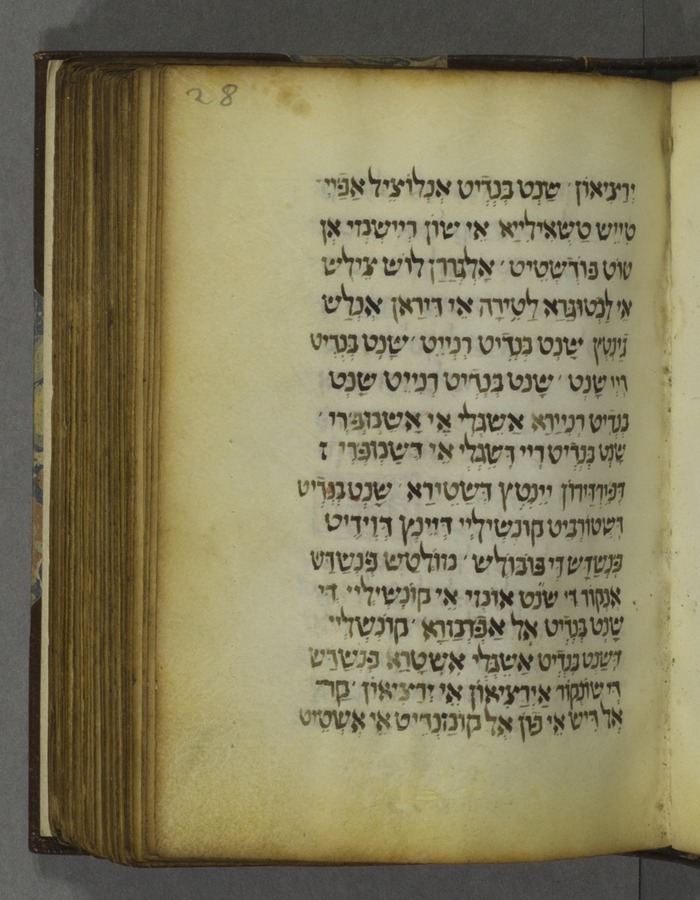 28
ירציאון שנט בנדיט אנלוציל אפיי
טייש טשאילייא אי שון רייישנדי אן
טוט פודשטיט אלגרן לוש צילש
אי לנטוגרא לטירה אי דיראן אנלש
יינטץ שנט בנדיט רנייט שנט בנדיט
ריי שנט שנט בנדיט רנייט שנט
בנדיט רניירא אשגלי אי אשנופרו
שנט בנדיט ריי דשגלי אי דשנופרי ז
יינטץ דשטירא שנט בנדיט
דשטורביט קונשיליי דיינץ דוידיט
פנשדש די פופולש מולטש פנשדש
אנקור די שנט אונזי אי קונשיליי די
שנט בנדיט אל אפרמורא קונשליי
דשנט בנדיט אשגלי אשטרא פנשדש
די שונקור אירציאון אי ירציאון קר
אל דיש אי פון אל קומנדיט אי אשטיט